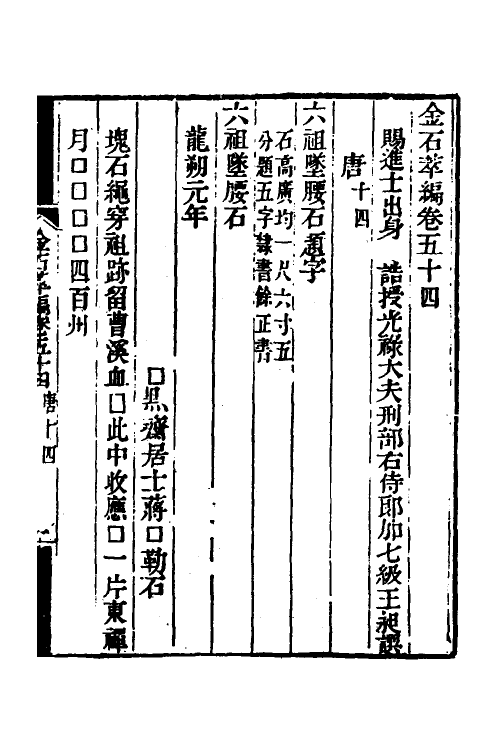 金石萃編卷五十四
賜進士出身　誥授光祿大夫刑部右侍郎加七級王昶譔
唐十四
六祖墜腰石題字
石高廣均一尺六寸五
分題五字隸書餘正書
六祖墜腰石
龍朔元年
□㷊齋居士蔣□勒石
塊石繩穿祖跡留曹溪血□此中收應□一片東禪
月□□□□四百州
金石萃編卷五十四　唐十四　一